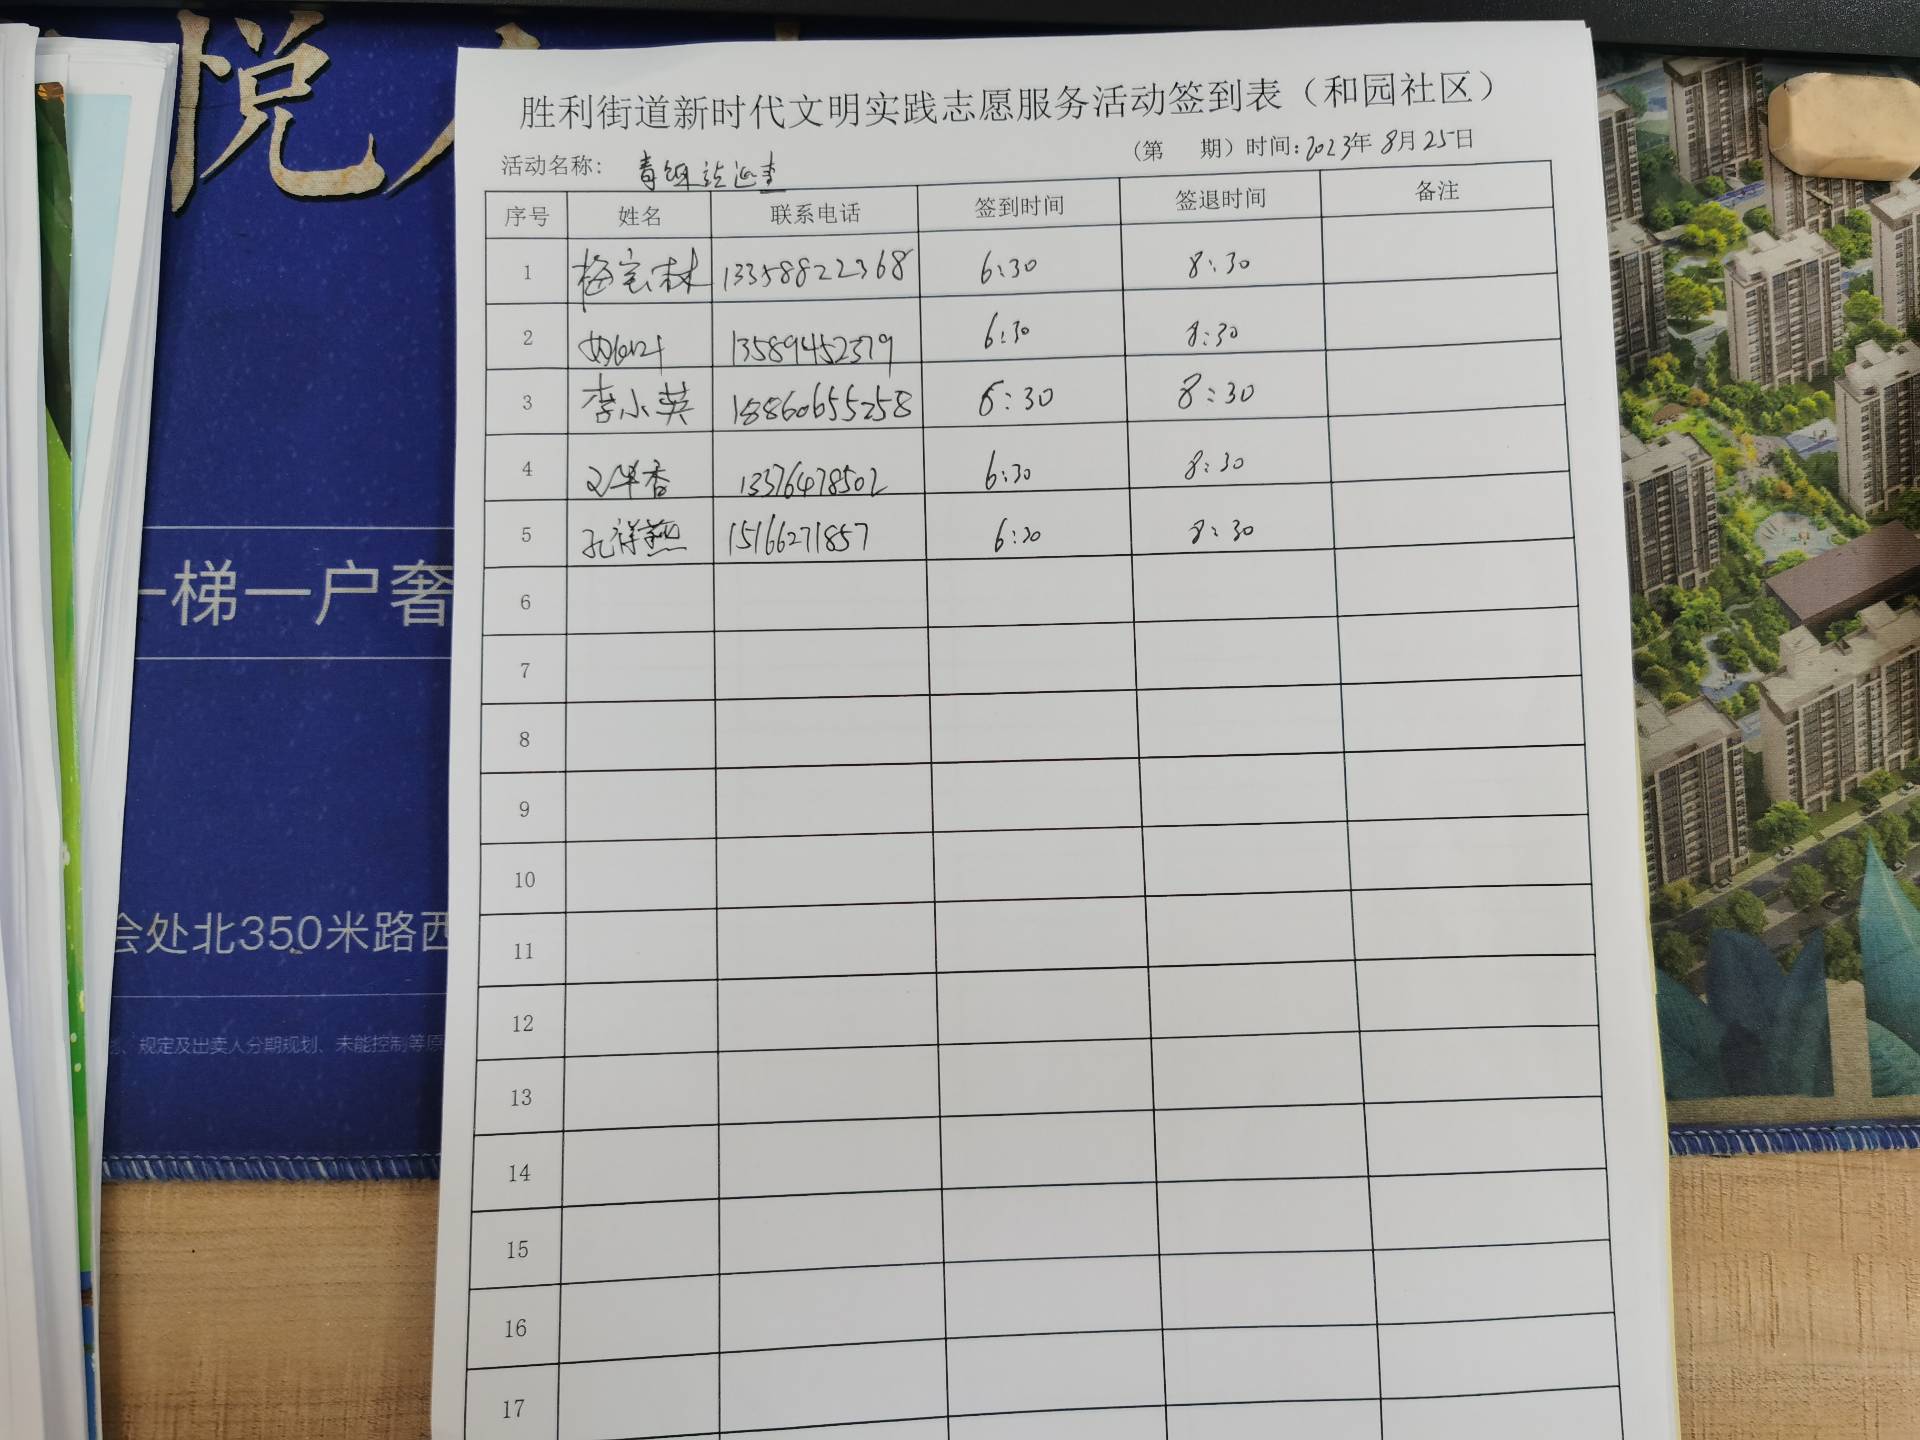 悦
胜利街道新时代文明实践志愿服务活动签到表（和园社区）
（第 期）时间:2023年8月25日
活动名称: 巡查
序号 姓名 联系电话 签到时间 签退时间 备注
1 梅宝林 13358822368 6:30 8:30
2 13589452379 6:30 8:30
3 李小英 18860655258 6:30 8:30
4 香 13376478502 6:30 8:30
5 孔祥燕 15166271857 6:30 8:30
6
7
8
9
10
11
12
13
14
15
16
17
一梯一户奢
会处北350米路西
、规定及出卖人分期规划、未能控制等原